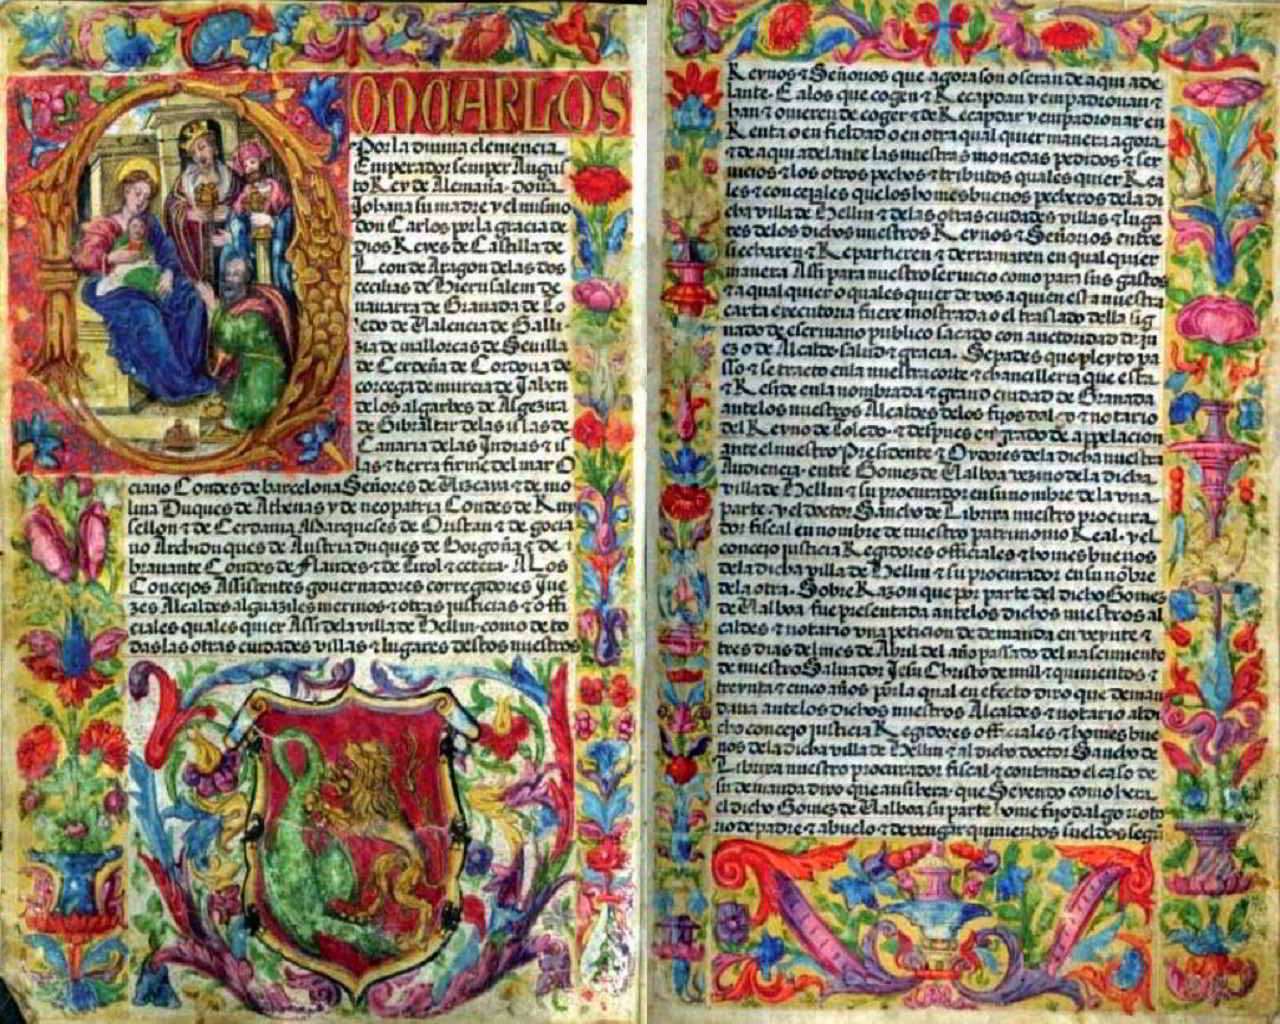 ON CARLOS
Por la diuina clemencia
Emperador semper Augus
to Rey de Alemaña · doña
Johana su madre y el mismo
don Carlos por la gracia de
dios Reyes de Castilla de
Leon de Aragon de las dos
cecilias de Hierusalem de
nauarra de Granada de To
ledo de Valencia de Galli
zia de mallorcas de Seuilla
de Cerdeña de Cordoua de
corcega de murcia de Jahen
de los algarbes de Algezira
de Gibraltar de las islas de
Canaria de las Indias ⁊ is
las ⁊ tierra firme del mar O
ciano Condes de barcelona Señores de Vizcaya ⁊ de mo
lina Duques de Athenas y de neopatria Condes de Ruy
sellon ⁊ de Cerdania Marqueses de Oristan ⁊ de gocia
no Archiduques de Austria duques de Borgoña ⁊ de
brauante Condes de Flandes ⁊ de Tirol ⁊ cetera · A Los
Concejos Assistentes gouernadores corregidores Jue
zes Alcaldes alguaziles merinos ⁊ otras justicias ⁊ offi
ciales quales quier Assi de la villa de Hellin · como de to
das las otras ciudades villas ⁊ lugares destos nuestros
Reynos ⁊ Señorios que agora son o seran de aqui ade
lante · E a los que cogen ⁊ Recapdan y empadronan ⁊
han ⁊ ouieren de coger ⁊ de Recapdar y empadronar en
Renta o en fieldad o en otra qual quier manera agora
⁊ de aqui adelante las nuestras monedas pedidos ⁊ ser
uicios ⁊ los otros pechos ⁊ tributos quales quier Rea
les ⁊ concejales que los homes buenos pecheros de la di
cha villa de Hellin ⁊ de las otras ciudades villas ⁊ luga
res de los dichos nuestros Reynos ⁊ Señorios entre
si echaren ⁊ Repartieren ⁊ derramaren en qual quier
manera Assi para nuestro seruicio como para sus gastos
⁊ a qual quier o quales quier de vos a quien esta nuestra
carta executoria fuere mostrada o el traslado della sig
nado de escriuano publico sacado con auctoridad de ju
ez o de Alcalde salud ⁊ gracia. Sepades que pleyto pa
sso ⁊ se tracto en la nuestra corte ⁊ chancilleria que esta
⁊ Reside en la nombrada ⁊ grand ciudad de Granada
ante los nuestros Alcaldes de los fijos dalgo ⁊ notario
del Reyno de Toledo · ⁊ despues en grado de appelacion
ante el nuestro Presidente ⁊ Oydores de la dicha nuestra
Audiencia · entre Gomez de Valboa vezino de la dicha
villa de Hellin ⁊ su procurador en su nombre de la vna
parte · y el doctor Sancho de Librixa nuestro procura
dor fiscal en nombre de nuestro patrimonio Real · y el
concejo justicia Regidores officiales ⁊ homes buenos
de la dicha villa de Hellin ⁊ su procurador en su nõbre
de la otra · Sobre Razon que por parte del dicho Gomez
de Valboa fue presentada ante los dichos nuestros al
caldes ⁊ notario vna peticion de demanda en veynte ⁊
tres dias del mes de Abril del año passado del nascimiento
de nuestro Saluador Jesu Christo de mill ⁊ quinientos ⁊
treynta ⁊ cinco años por la qual en efecto dixo que deman
daua ante los dichos nuestros Alcaldes ⁊ notario al di
cho concejo justicia Regidores officiales ⁊ homes bue
nos de la dicha villa de Hellin ⁊ al dicho doctor Sancho de
Librixa nuestro procurador fiscal ⁊ contando el caso de
su demanda dixo que ansi hera · que Seyendo como hera
el dicho Gomez de Valboa su parte home fijo dalgo noto
rio de padre ⁊ abuelo ⁊ de vengar quinientos sueldos segũ